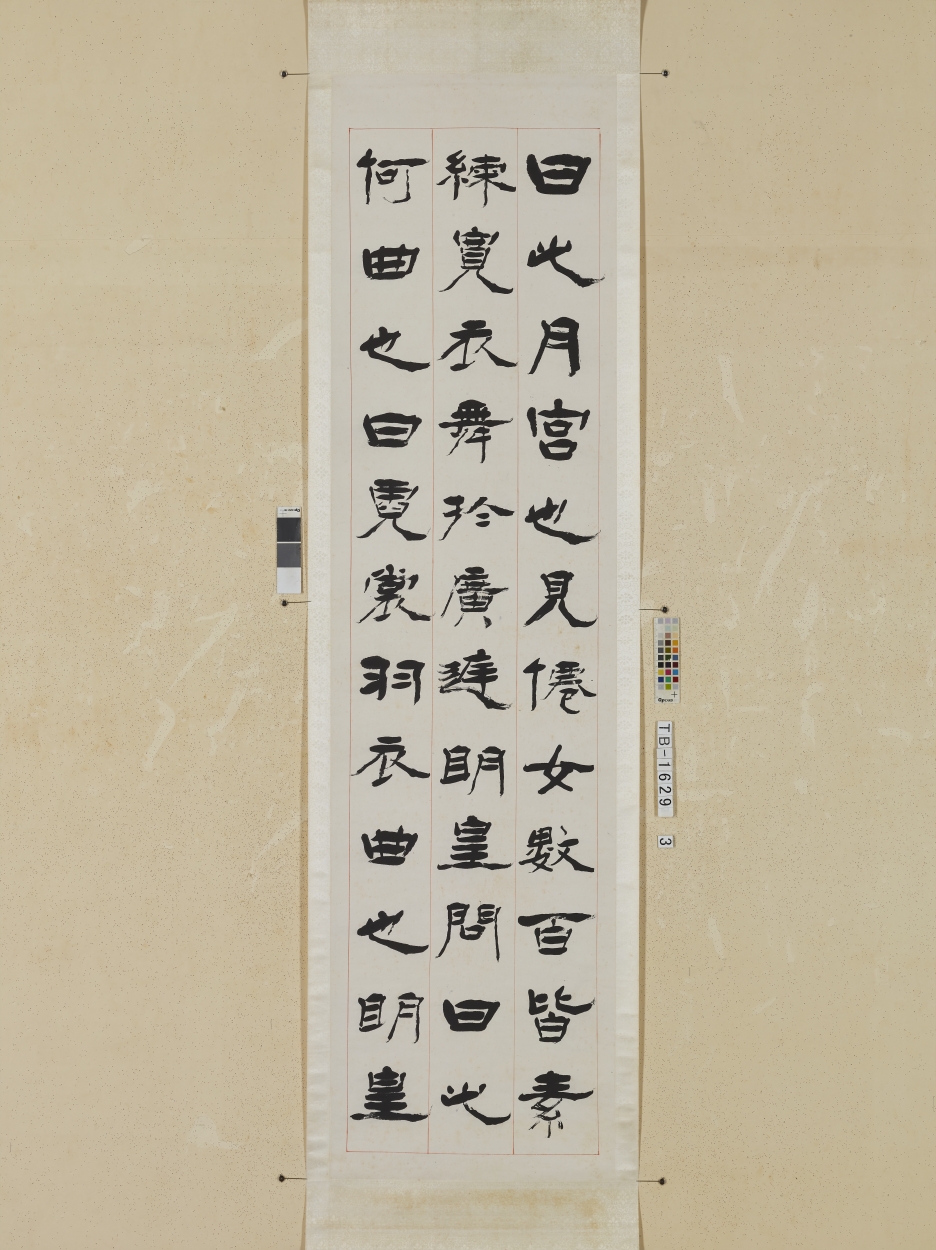 曰此月宮也見僊女數百皆素
練寬衣舞於廣筵明皇問曰此
何曲也曰霓裳羽衣曲也明皇
TB-1629
3